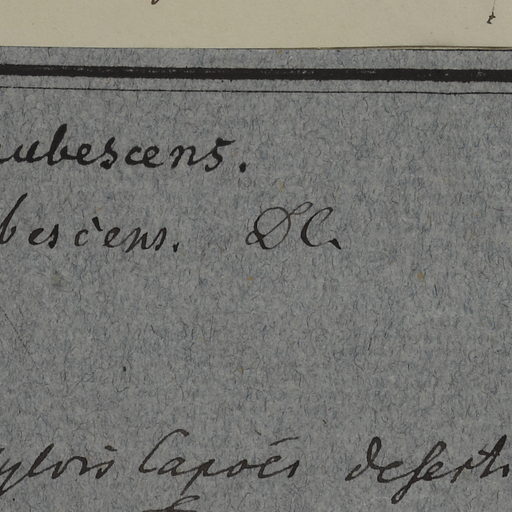 ubescens.
bescens. DC.
sylvis Capoës desertis